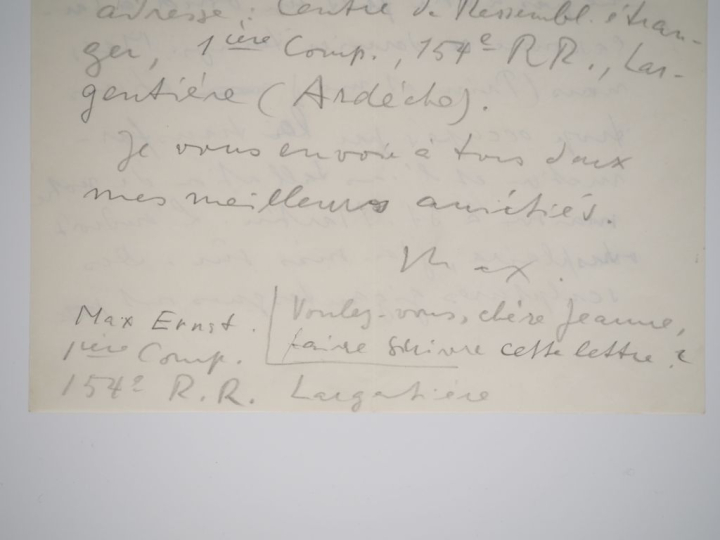 adresse : Centre de Rassembl. étran-
ger, 1ière Comp., 154e R.R., Lar-
gentière (Ardèche).
Je vous envoie à tous deux
mes meilleures amitiés.
Max.
Max Ernst.
1ière Comp.
154e R.R. Largentière
Voulez-vous, chère Jeanne,
faire suivre cette lettre ?